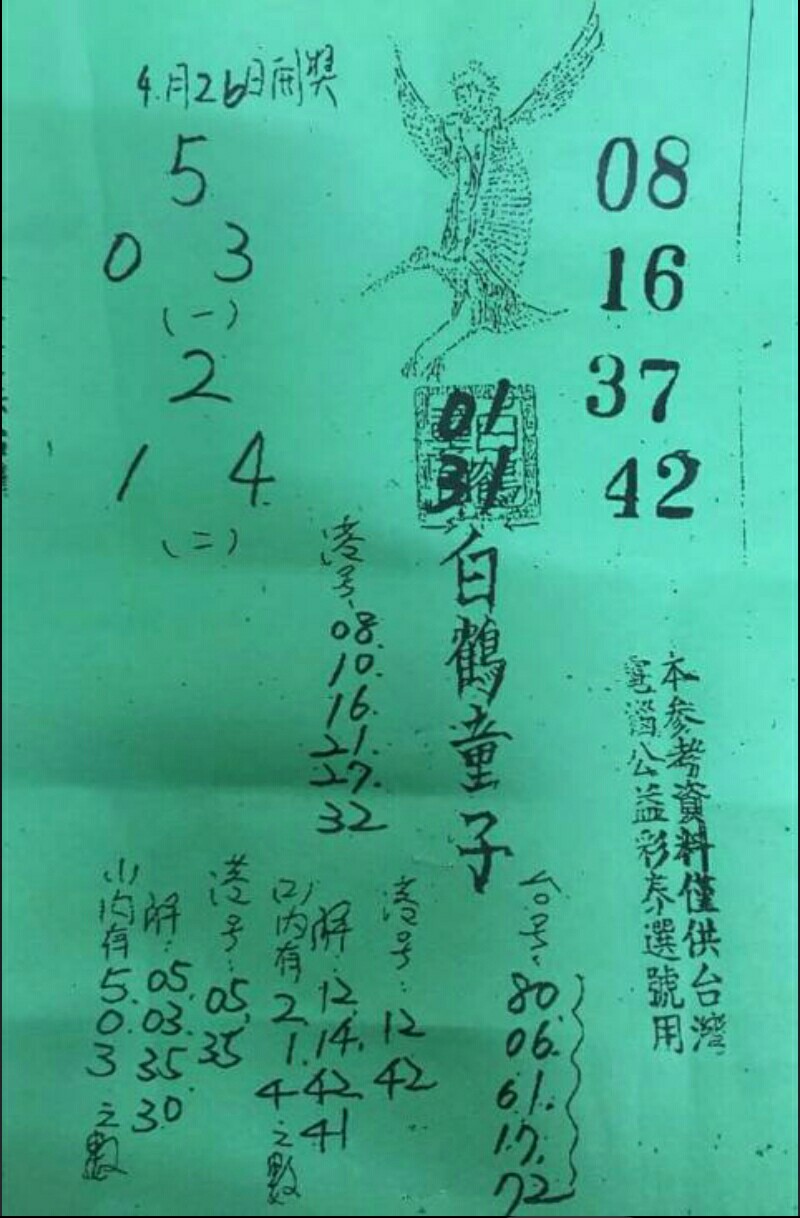 4月26日開獎
5
0 3
(一)
2
1 4
(二)
08
16
37
42
01
31
白鶴童子
本參考資料僅供台灣
電腦公益彩券選號用
港号:
08.
10.
16.
21.
27.
32
台号:
80.
06.
61.
17.
72
港号:
12
42
解:
12.
14.
42
41
(2)内有
2.
1.
4
之數
港号:
05.
35
解:
05.
03.
35.
30
(1)内有
5.
0.
3
之數